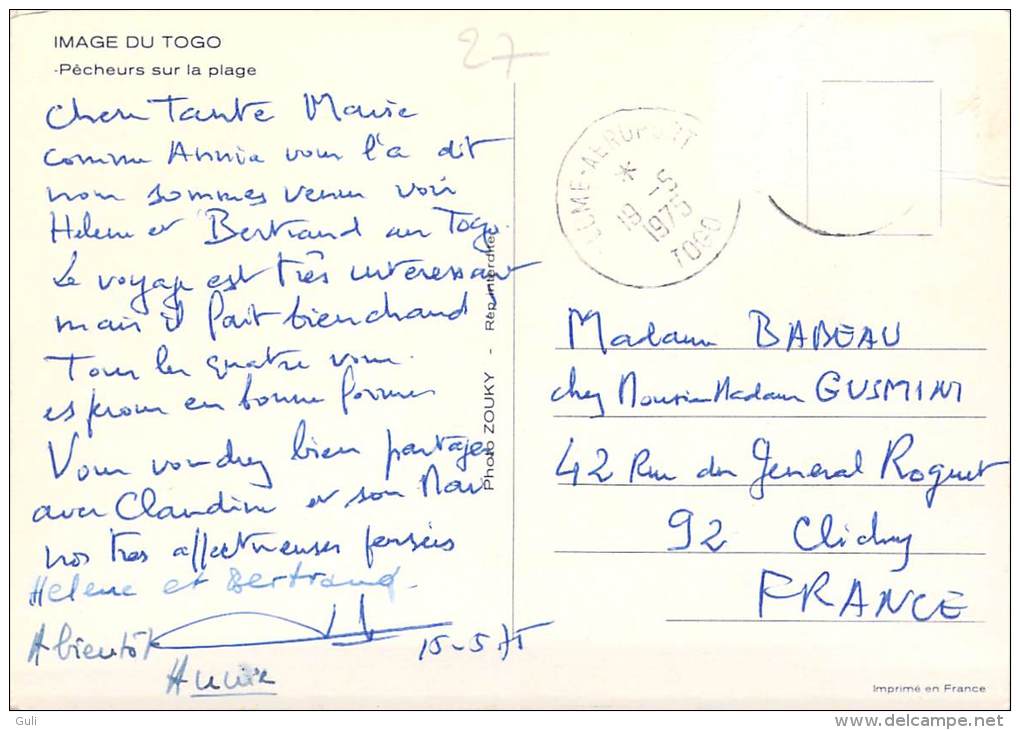 IMAGE DU TOGO
-Pêcheurs sur la plage
27
Chère Tante Marie
comme Annie vous l'a dit
nous sommes venus voir
Helene et Bertrand au Togo.
Le voyage est très interessant
mais il fait bien chaud
Tous les quatre vous
espérons en bonne formes
Vous voudrez bien partager
avec Claudine et son Mari
nos très affectueuses pensées
Helene et Bertrand.
A bientôt
Annie
15-5-75
Photo ZOUKY - Rep. interdite
LOME-AEROPORT
*
19 -5
1975
TOGO
Madame BABEAU
chez Monsieur Madame GUSMINI
42 Rue du General Roguet
92 Clichy
FRANCE
Imprimé en France
Guli
delcampe.net